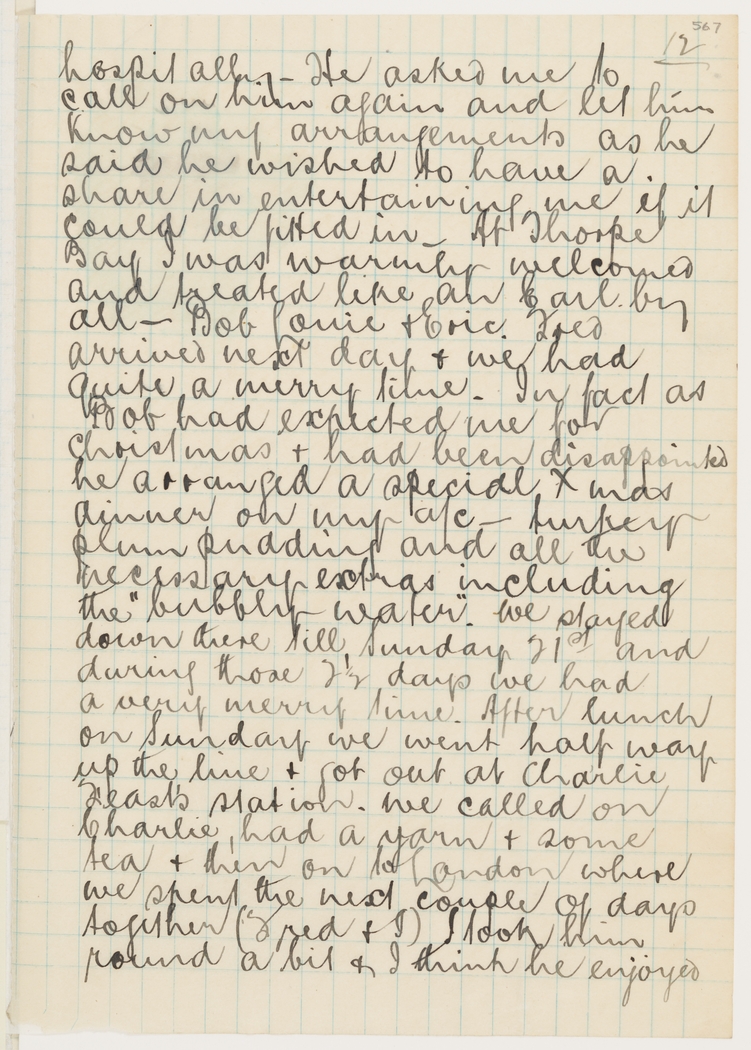 567
12
hospitally - He asked me to
call on him again and let him
know my arrangements as he
said he wished to have a
share in entertaining me if it
could be fitted in - At Thorpe
Bay I was warmly welcomed
and treated like an Earl by
all - Bob Connie & Eric. Fred
arrived next day & we had
quite a merry time. In fact as
Bob had expected me for
christmas & had been disappointed
he arranged a special Xmas
dinner on my a/c - turkey
plum pudding and all the
necessary extras including
the "bubbly water". We stayed
down there till Sunday 21st and
during those 2½ days we had
a very merry time. After lunch
on Sunday we went half way
up the line & got out at Charlie
station. We called on
Charlie, had a yarn & some
tea & then on to London where
we spent the next couple of days
together (Fred & I) I took him
round a bit & I think he enjoyed